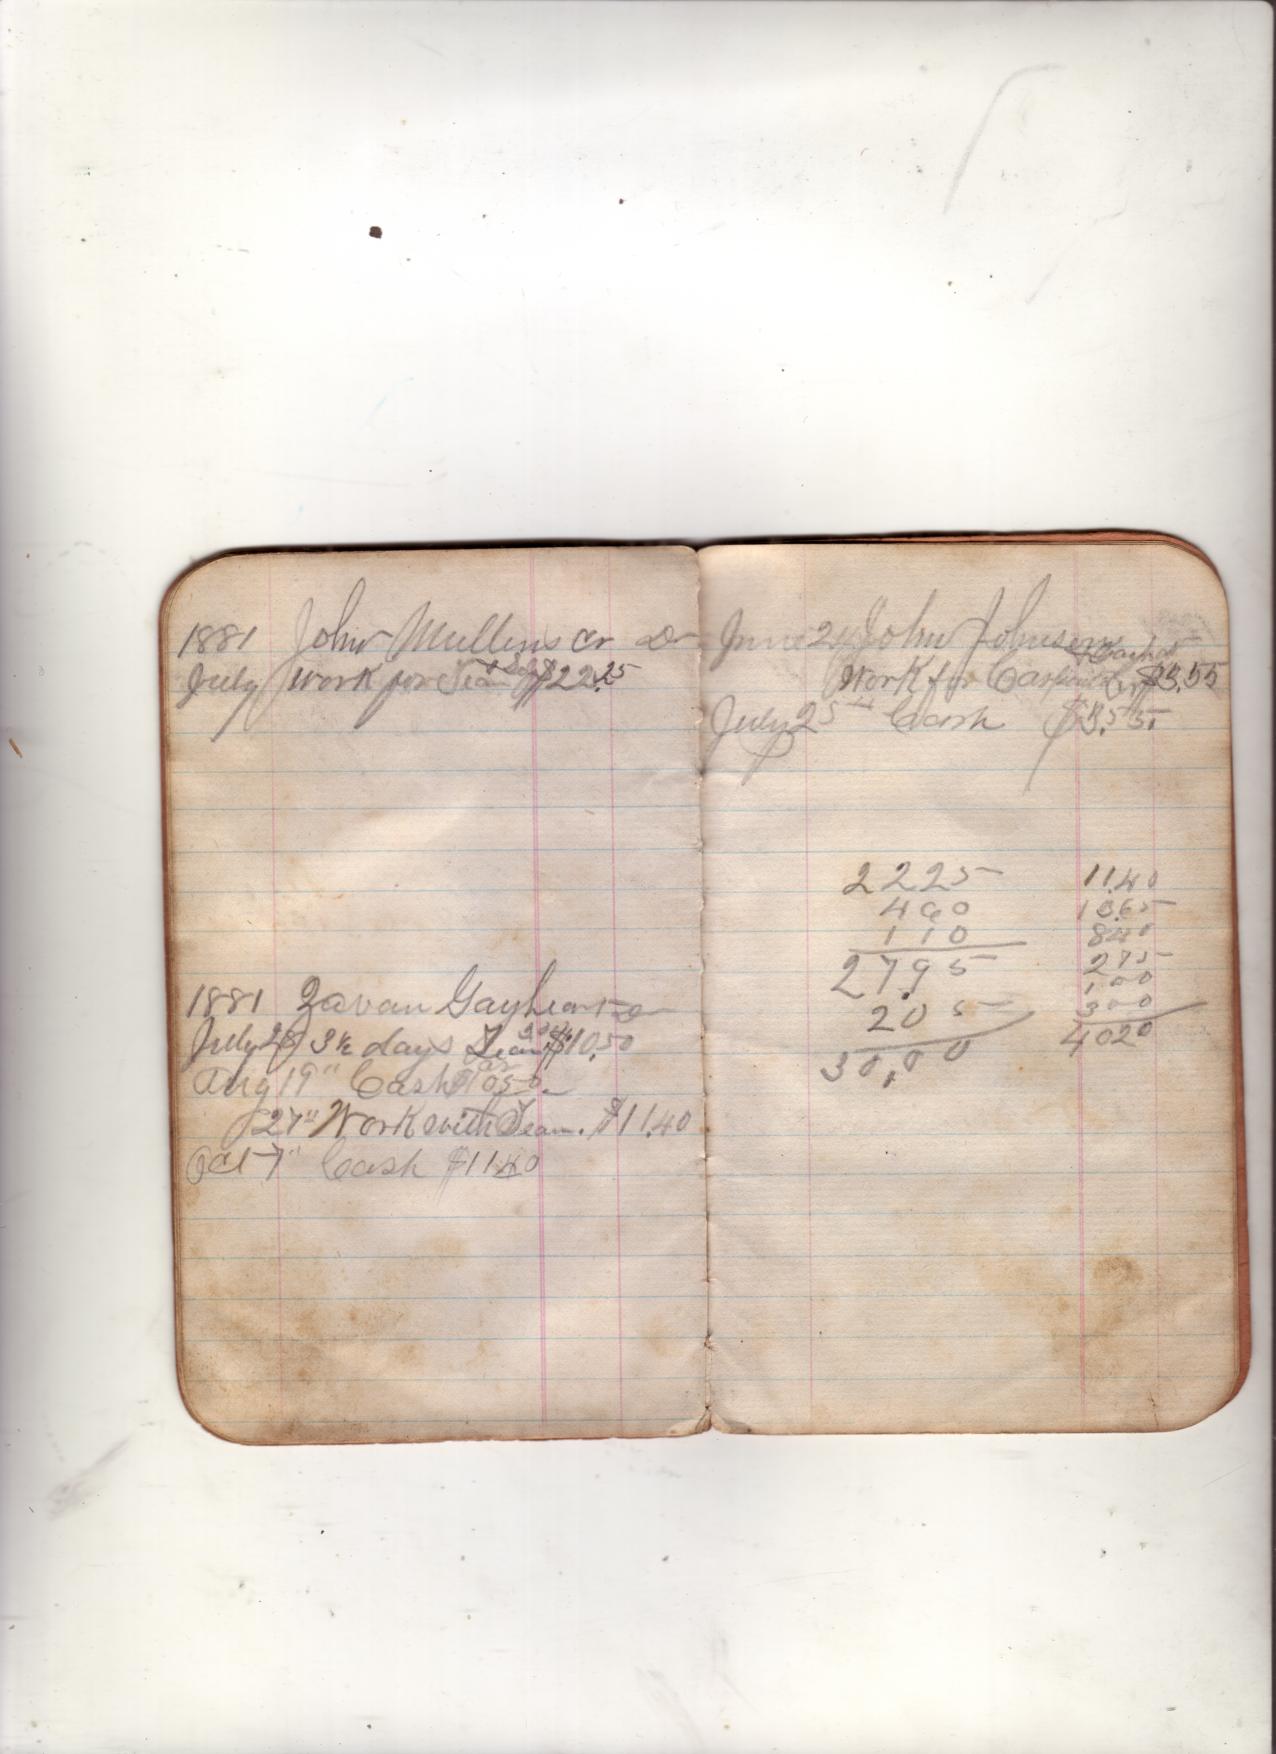 1881 John Mullins Cr Dr
July Work for Team & Self $22.25
1881 Zavan Gayheart
July 28 3½ days Team $10.50
Aug 19" Cash 10 50
27" Work with Team. $11.40
Oct 7" Cash $11.40
June 24 John Johnson
Work for $3.55
July 25th Cash $3.55
2225
460
110
27.95
205
30,00
11.40
1365
840
275
100
300
4020